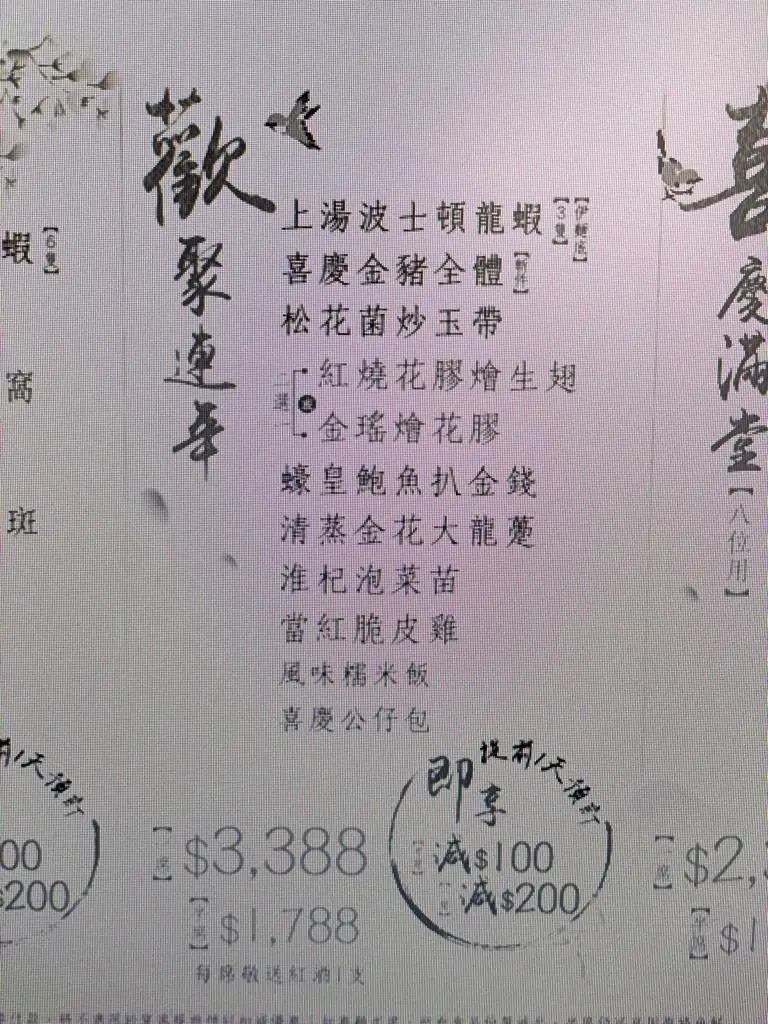 歡聚連年
上湯波士頓龍蝦【3隻】【伊麵底】
喜慶金豬全體
松花菌炒玉帶
二選一
紅燒花膠燴生翅
或
金瑤燴花膠
蠔皇鮑魚扒金錢
清蒸金花大龍躉
淮杞泡菜苗
當紅脆皮雞
風味糯米飯
喜慶公仔包
【一席】$3,388
【半席】$1,788
每席敬送紅酒1支
提前1天預訂
即享
【半席】減$100
【一席】減$200
蝦【6隻】
窩
斑
前1天預訂
00
$200
喜慶滿堂【八位用】
【一席】$2,
【半席】$1